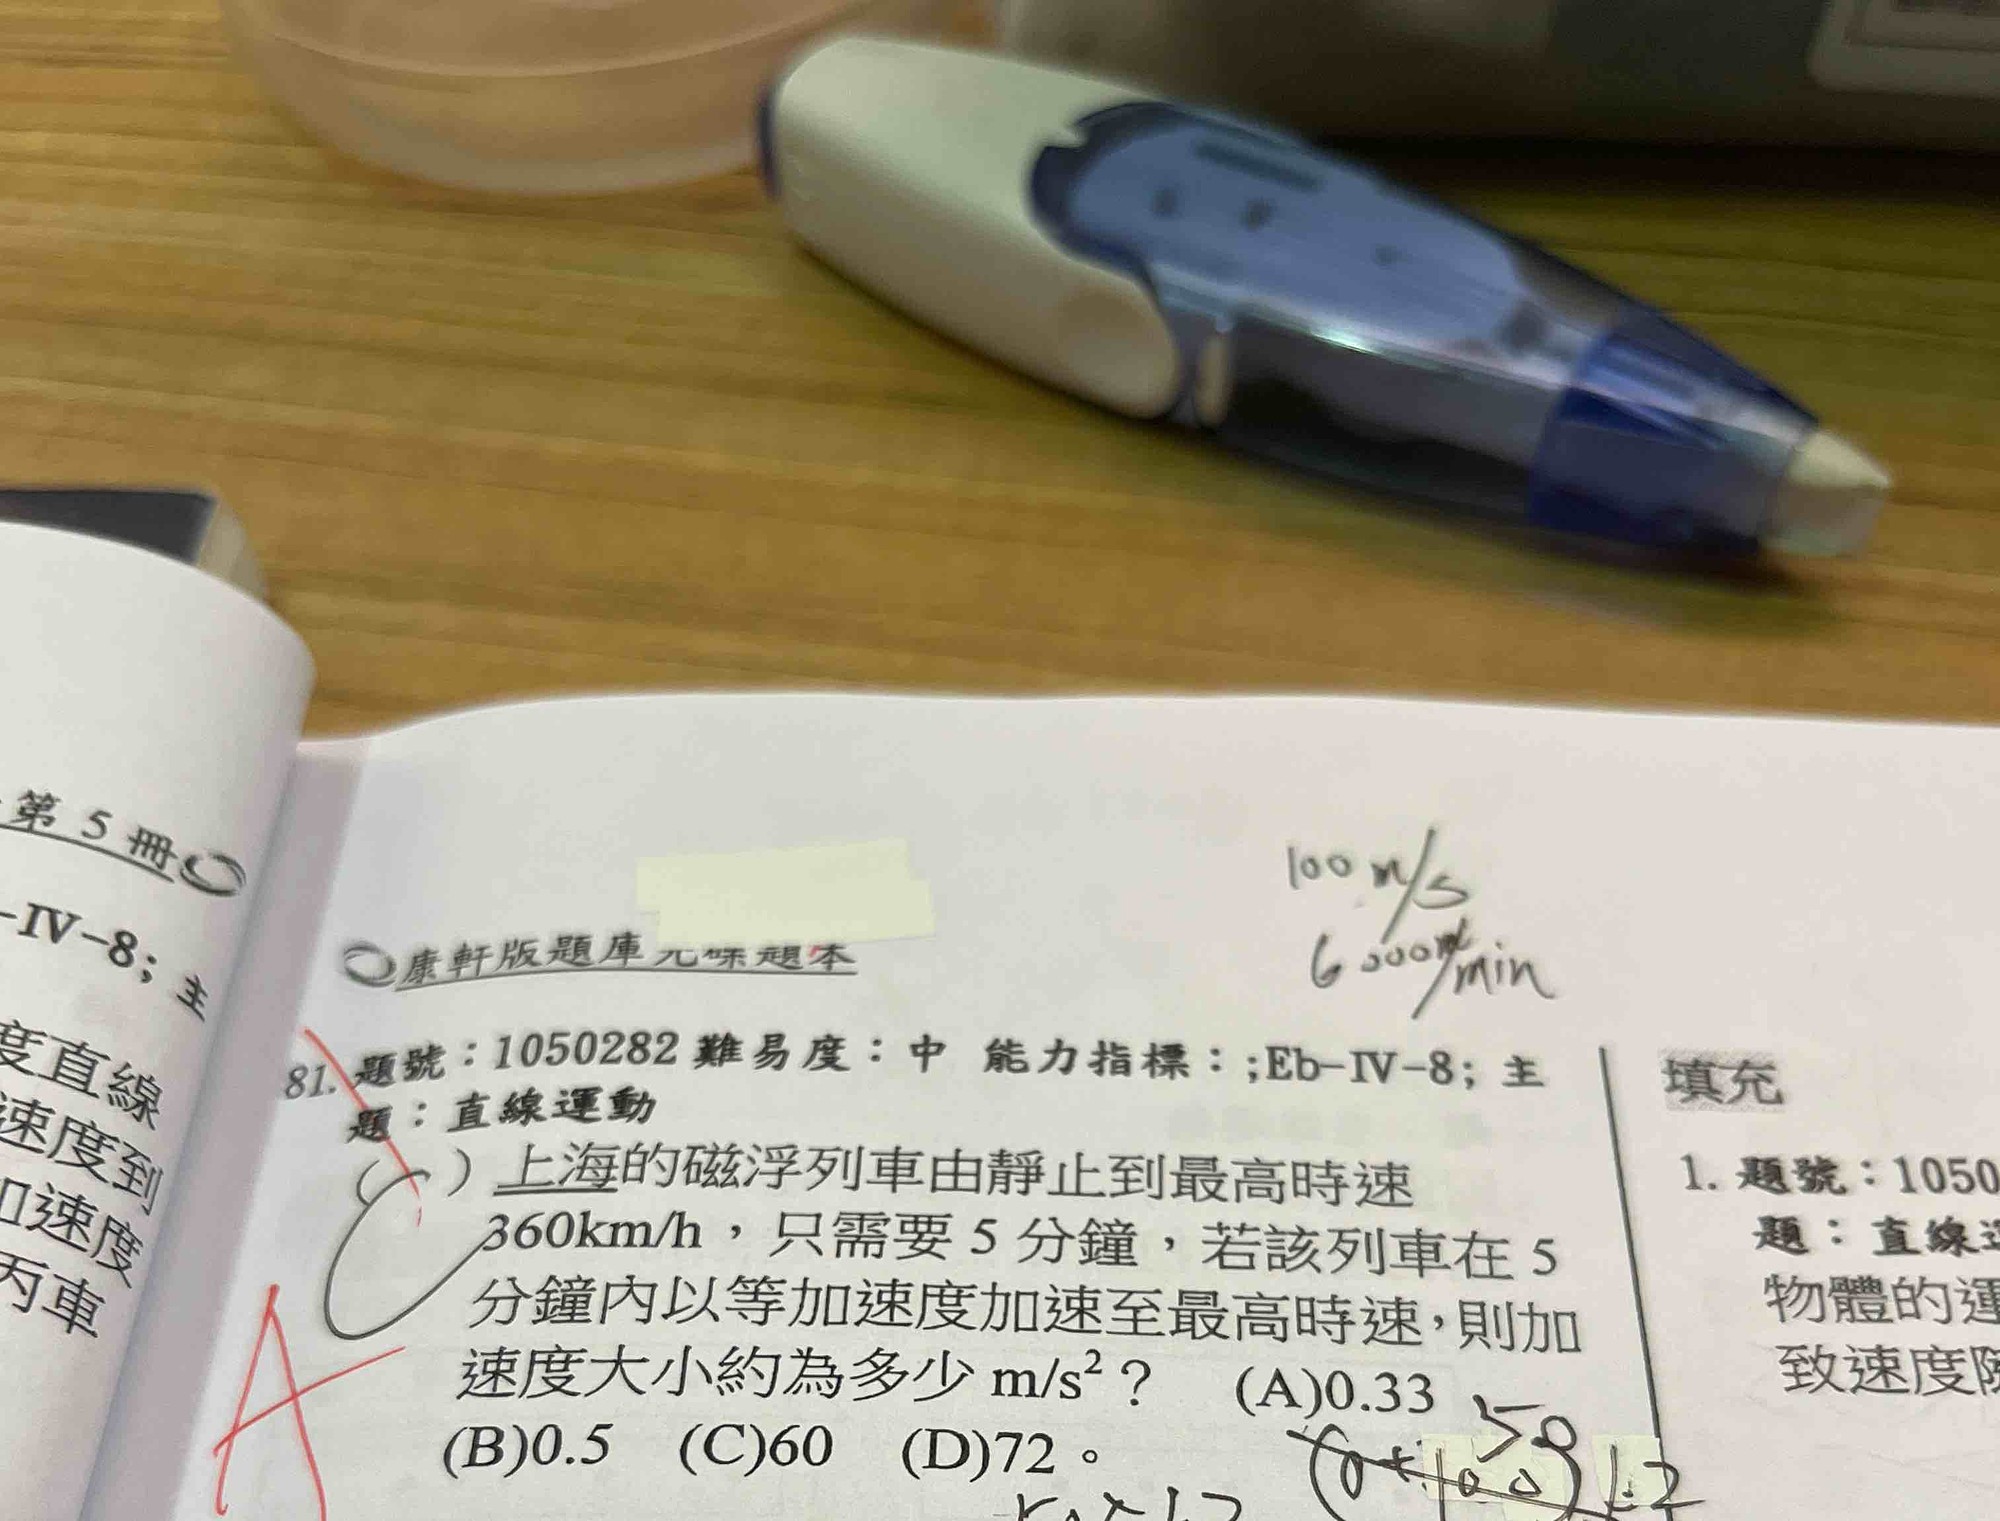 第 5 冊
-IV-8; 主
度直線
速度到
加速度
丙車
100 m/s
6000m/min
康軒版題庫光碟題本
81. 題號：1050282 難易度：中 能力指標：;Eb-IV-8; 主
題：直線運動
( C ) 上海的磁浮列車由靜止到最高時速
360km/h，只需要 5 分鐘，若該列車在 5
分鐘內以等加速度加速至最高時速，則加
速度大小約為多少 m/s²？ (A)0.33
(B)0.5 (C)60 (D)72。
A
50
(0+100) 1.2
填充
1. 題號：1050
題：直線運
物體的運
致速度